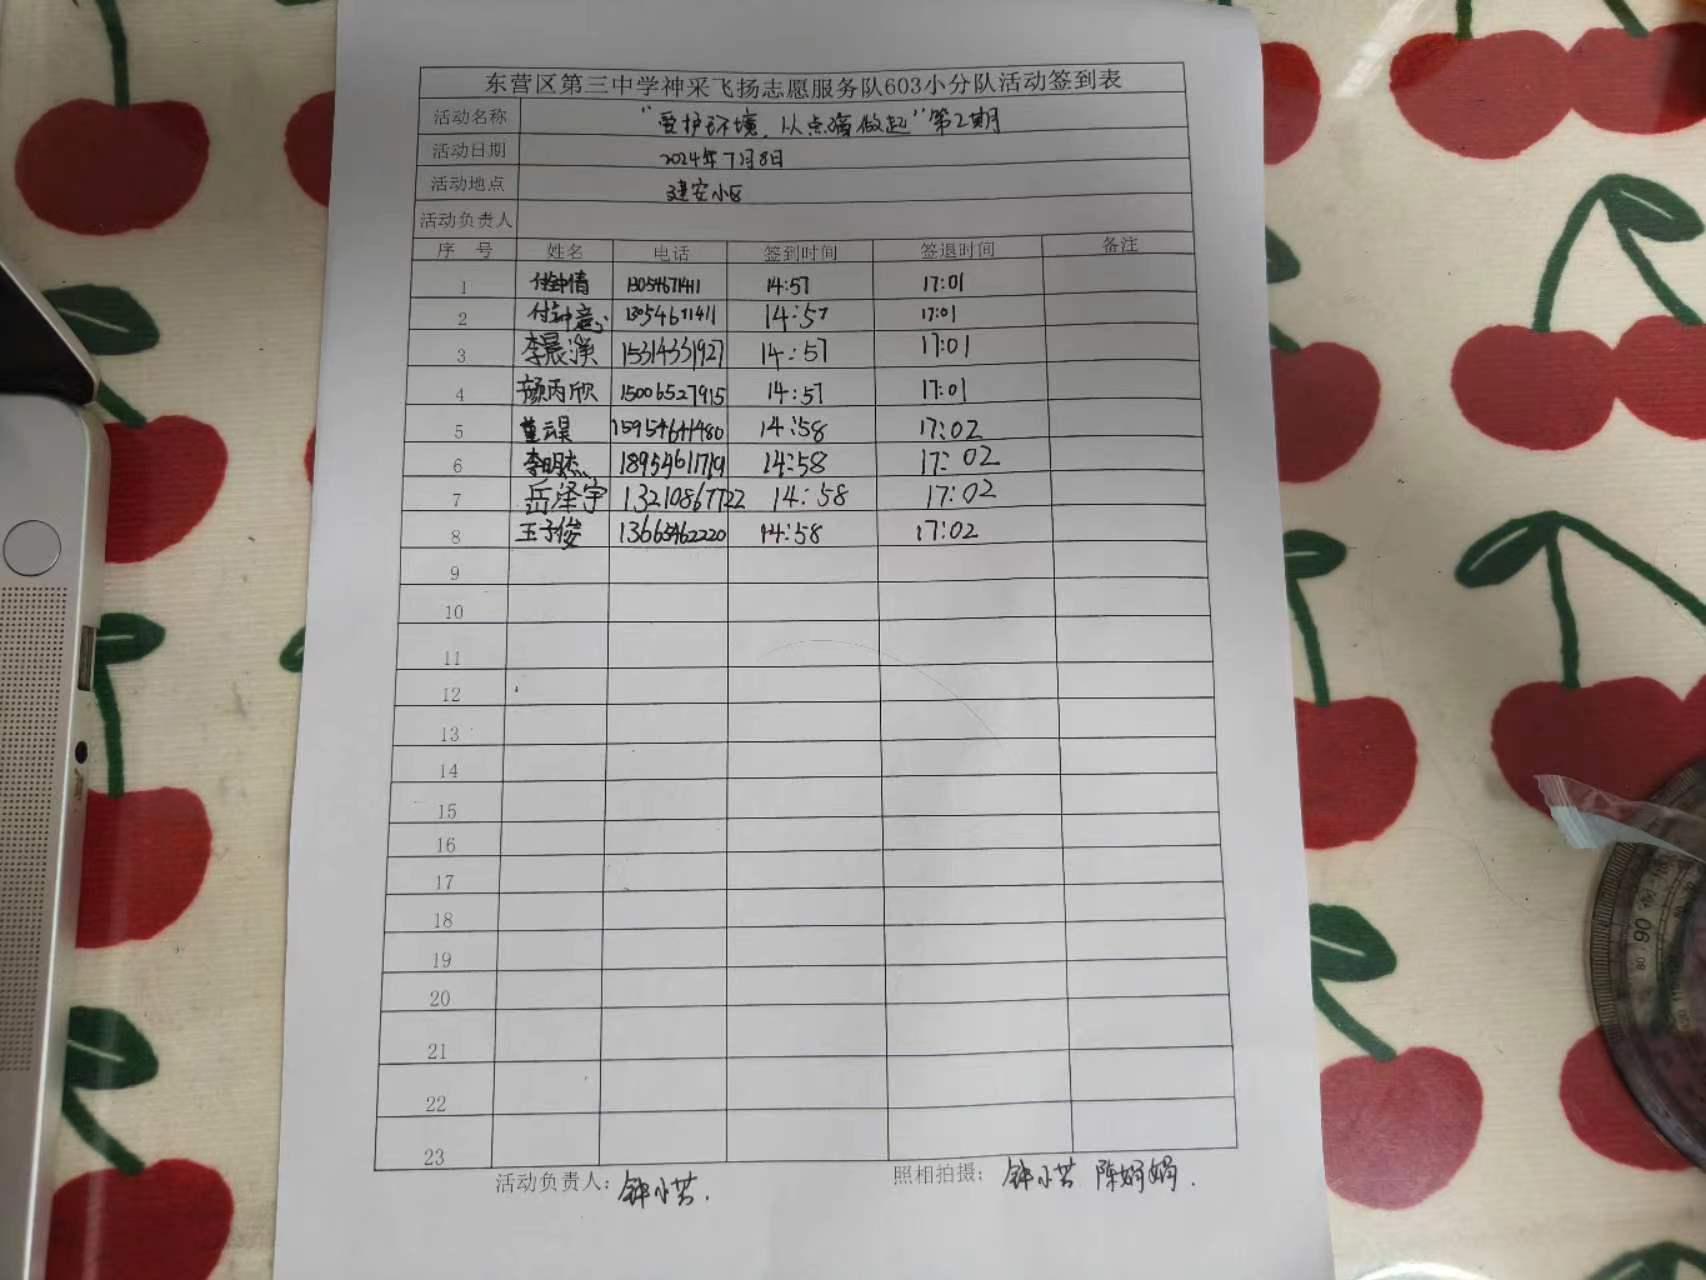 东营区第三中学神采飞扬志愿服务队603小分队活动签到表
活动名称 “爱护环境，从点滴做起”第2期
活动日期 2024年7月8日
活动地点 建安小区
活动负责人
序 号 姓名 电话 签到时间 签退时间 备注
1 付钟情 13054671411 14:57 17:01
2 付钟意 13054671411 14:57 17:01
3 李晨溪 15314331927 14:57 17:01
4 颜丙欣 15006527915 14:57 17:01
5 董云昊 14:58 17:02
6 李明杰 18954611719 14:58 17:02
7 岳泽宇 13210867722 14:58 17:02
8 王子俊 13665462220 14:58 17:02
9
10
11
12
13
14
15
16
17
18
19
20
21
22
23
活动负责人：钟小芸. 照相拍摄：钟小芸 陈娟娟.
90
80